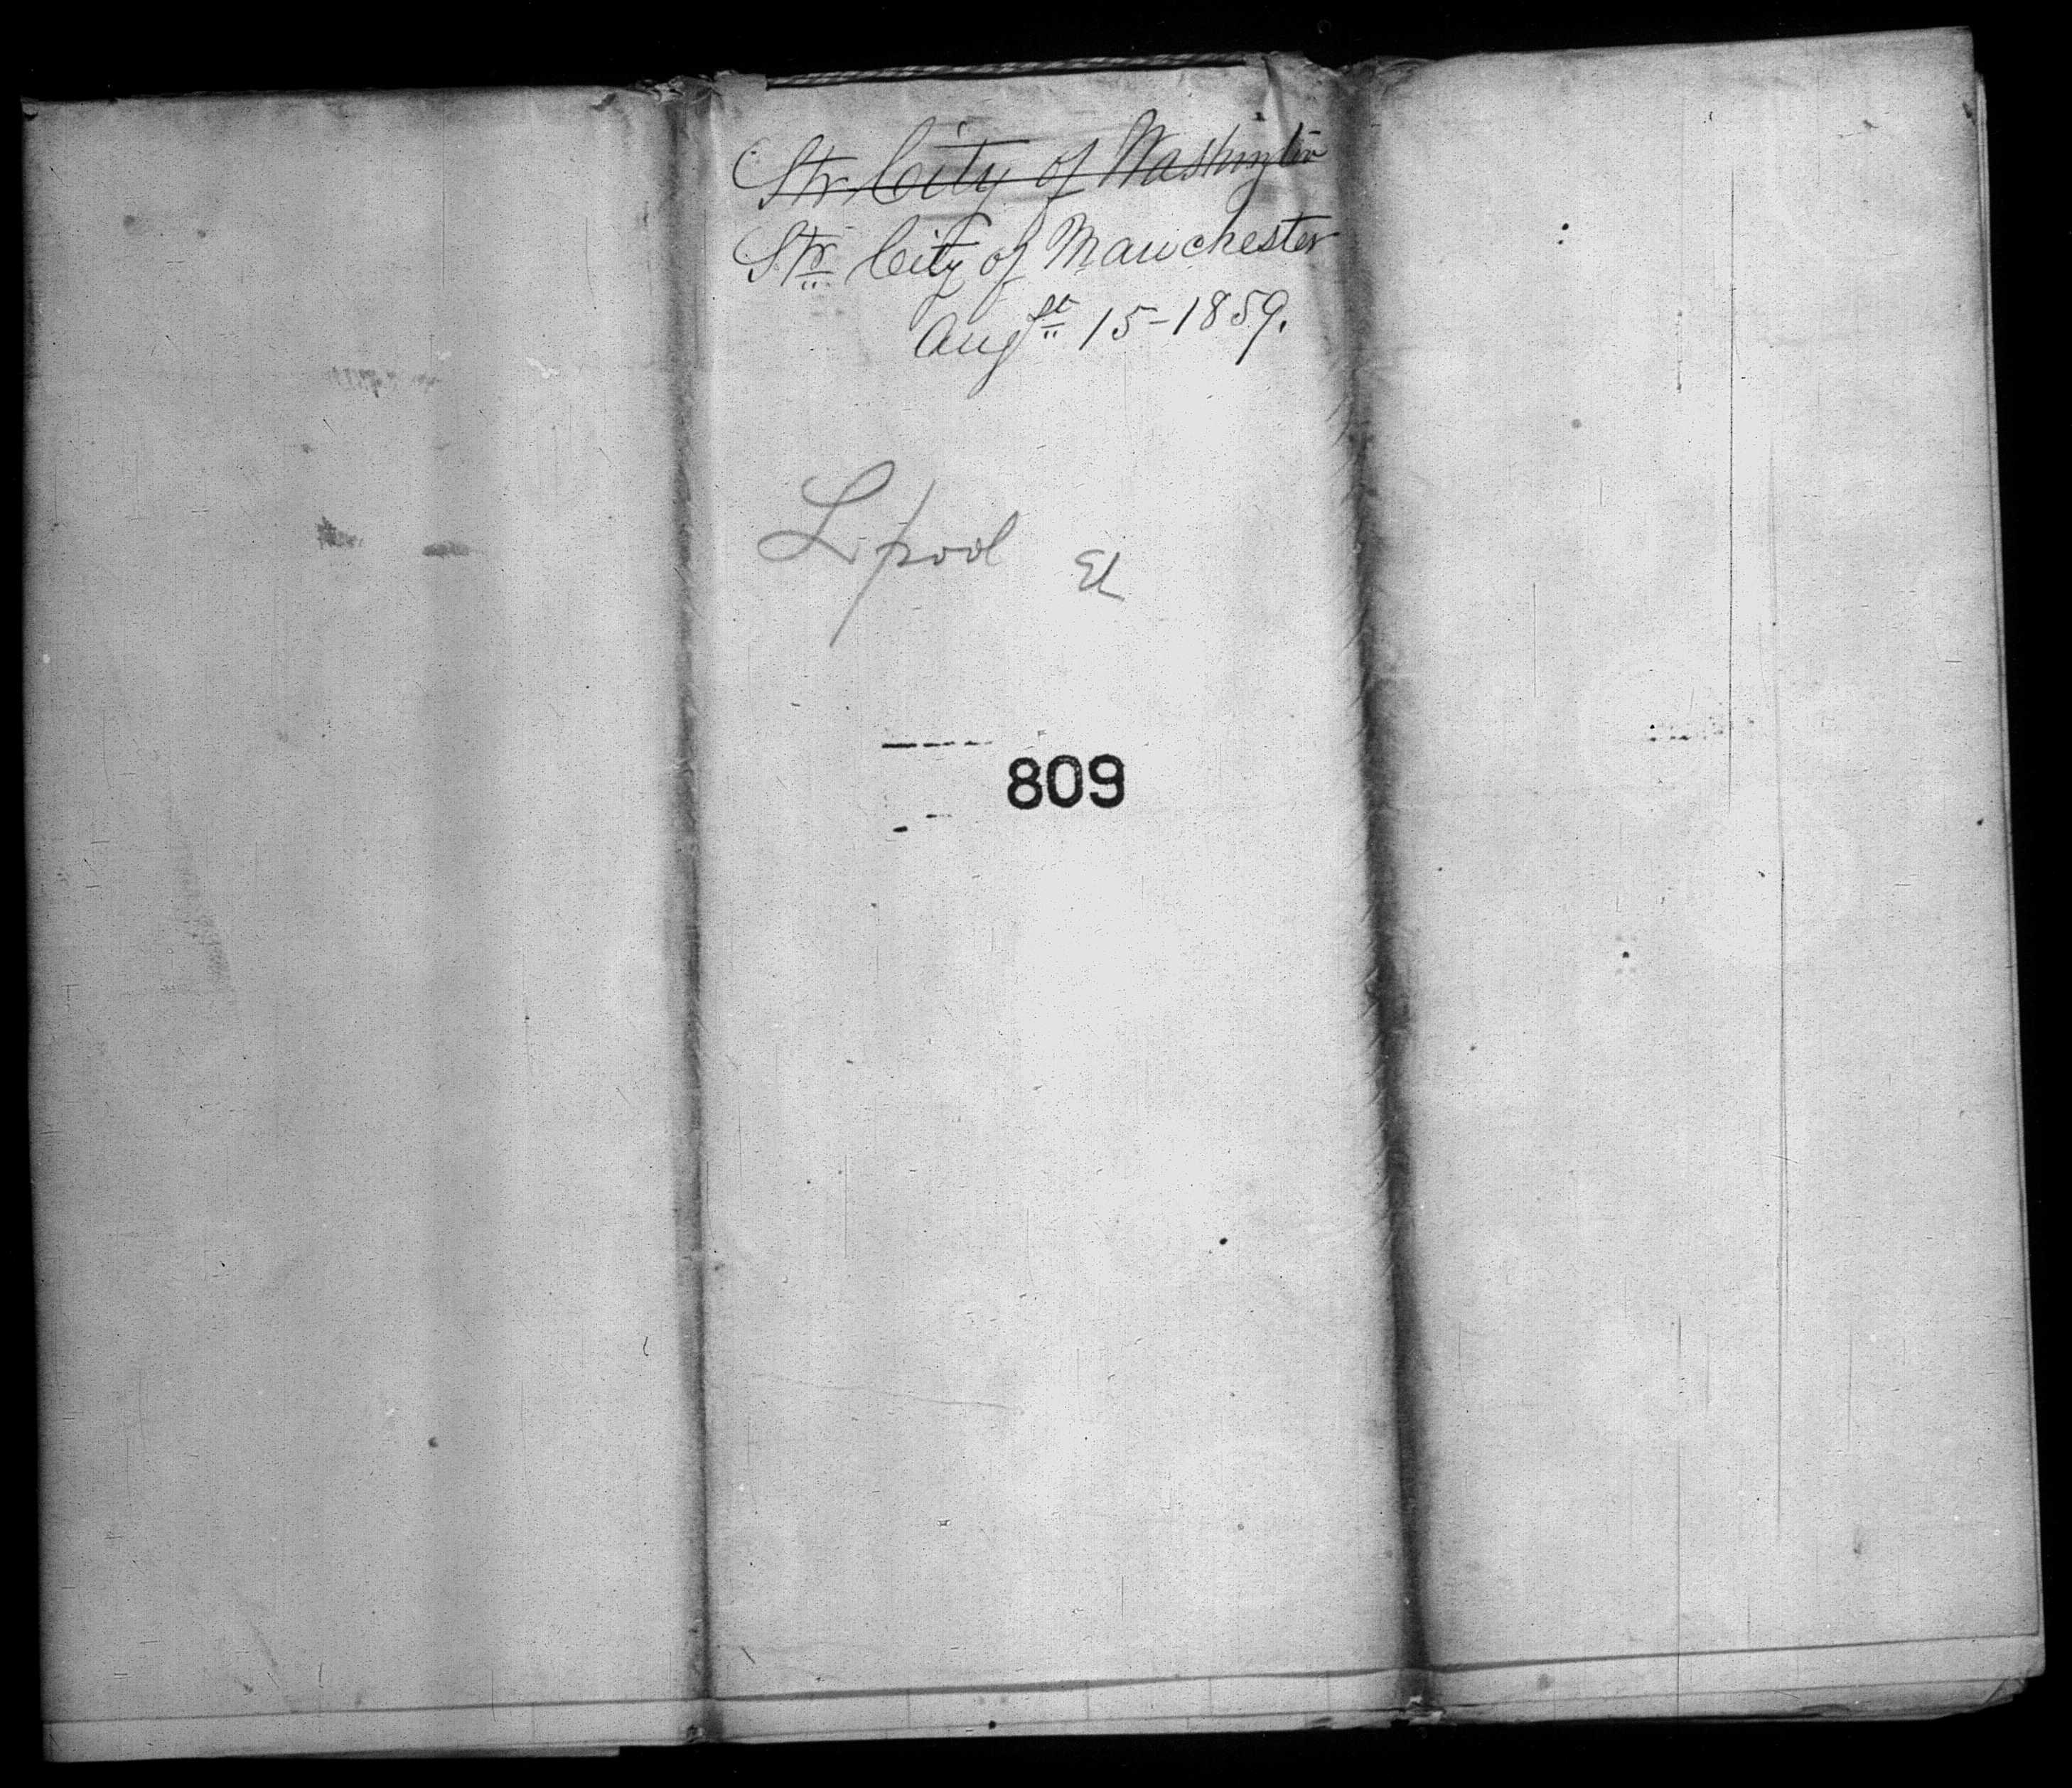 Str City of Washington
Str City of Manchester
Augst 15-1859.
L'pool El
809